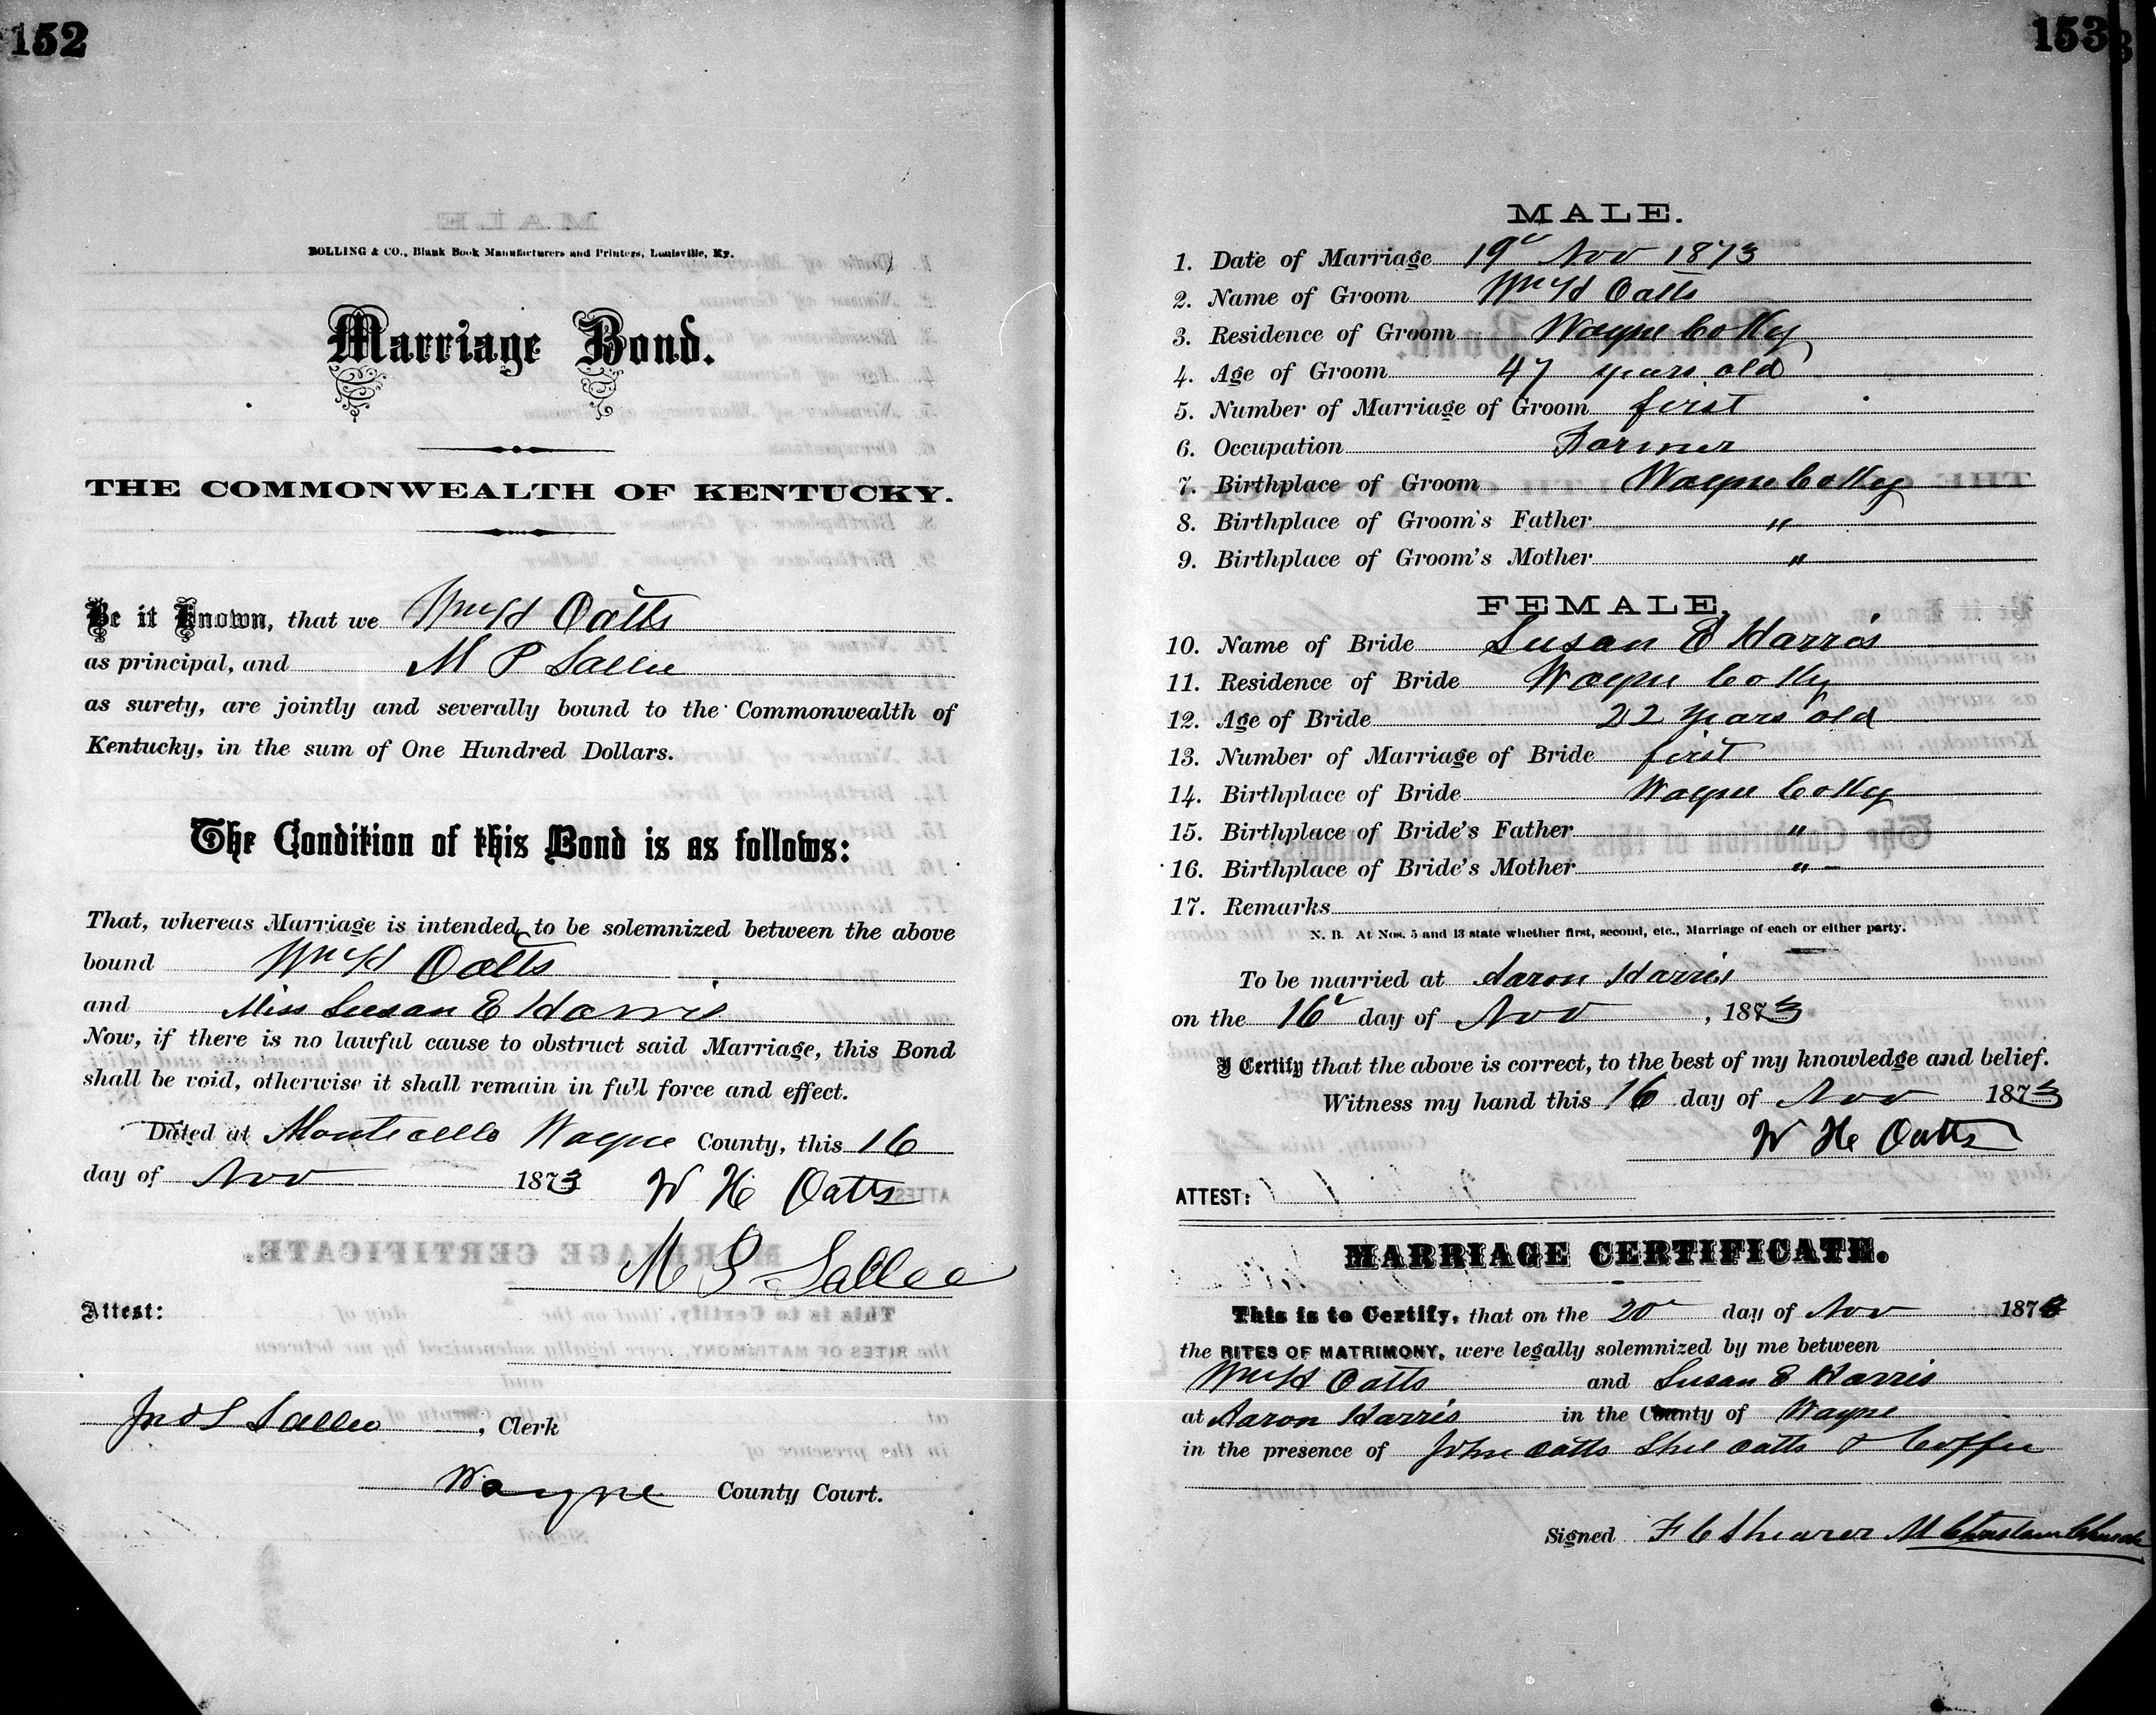 152
BOLLING & CO., Blank Book Manufacturers and Printers, Louisville, Ky.
Marriage Bond.
THE COMMONWEALTH OF KENTUCKY.
Be it Known, that we Wm H Oatts
as principal, and M P Sallee
as surety, are jointly and severally bound to the Commonwealth of
Kentucky, in the sum of One Hundred Dollars.
The Condition of this Bond is as follows:
That, whereas Marriage is intended to be solemnized between the above
bound Wm H Oatts
and Miss Susan E Harris
Now, if there is no lawful cause to obstruct said Marriage, this Bond
shall be void, otherwise it shall remain in full force and effect.
Dated at Monticello Wayne County, this 16
day of Nov 1873 W H Oatts
M P Sallee
Attest:
Jno S Sallee, Clerk
Wayne County Court.
153
MALE.
1. Date of Marriage 19" Nov 1873
2. Name of Groom Wm H Oatts
3. Residence of Groom Wayne Co Ky
4. Age of Groom 47 years old
5. Number of Marriage of Groom first
6. Occupation Farmer
7. Birthplace of Groom Wayne Co Ky
8. Birthplace of Groom's Father "
9. Birthplace of Groom's Mother "
FEMALE.
10. Name of Bride Susan E Harris
11. Residence of Bride Wayne Co Ky
12. Age of Bride 22 years old
13. Number of Marriage of Bride first
14. Birthplace of Bride Wayne Co Ky
15. Birthplace of Bride's Father "
16. Birthplace of Bride's Mother "
17. Remarks
N. B. At Nos. 5 and 13 state whether first, second, etc., Marriage of each or either party.
To be married at Aaron Harris
on the 16" day of Nov, 1873
I Certify that the above is correct, to the best of my knowledge and belief.
Witness my hand this 16 day of Nov 1873
W H Oatts
ATTEST:
MARRIAGE CERTIFICATE.
This is to Certify, that on the 20" day of Nov 1873
the RITES OF MATRIMONY, were legally solemnized by me between
Wm H Oatts and Susan E Harris
at Aaron Harris in the County of Wayne
in the presence of John Oatts Shel Oatts & Coffee
Signed F C Shearer M Christian Church